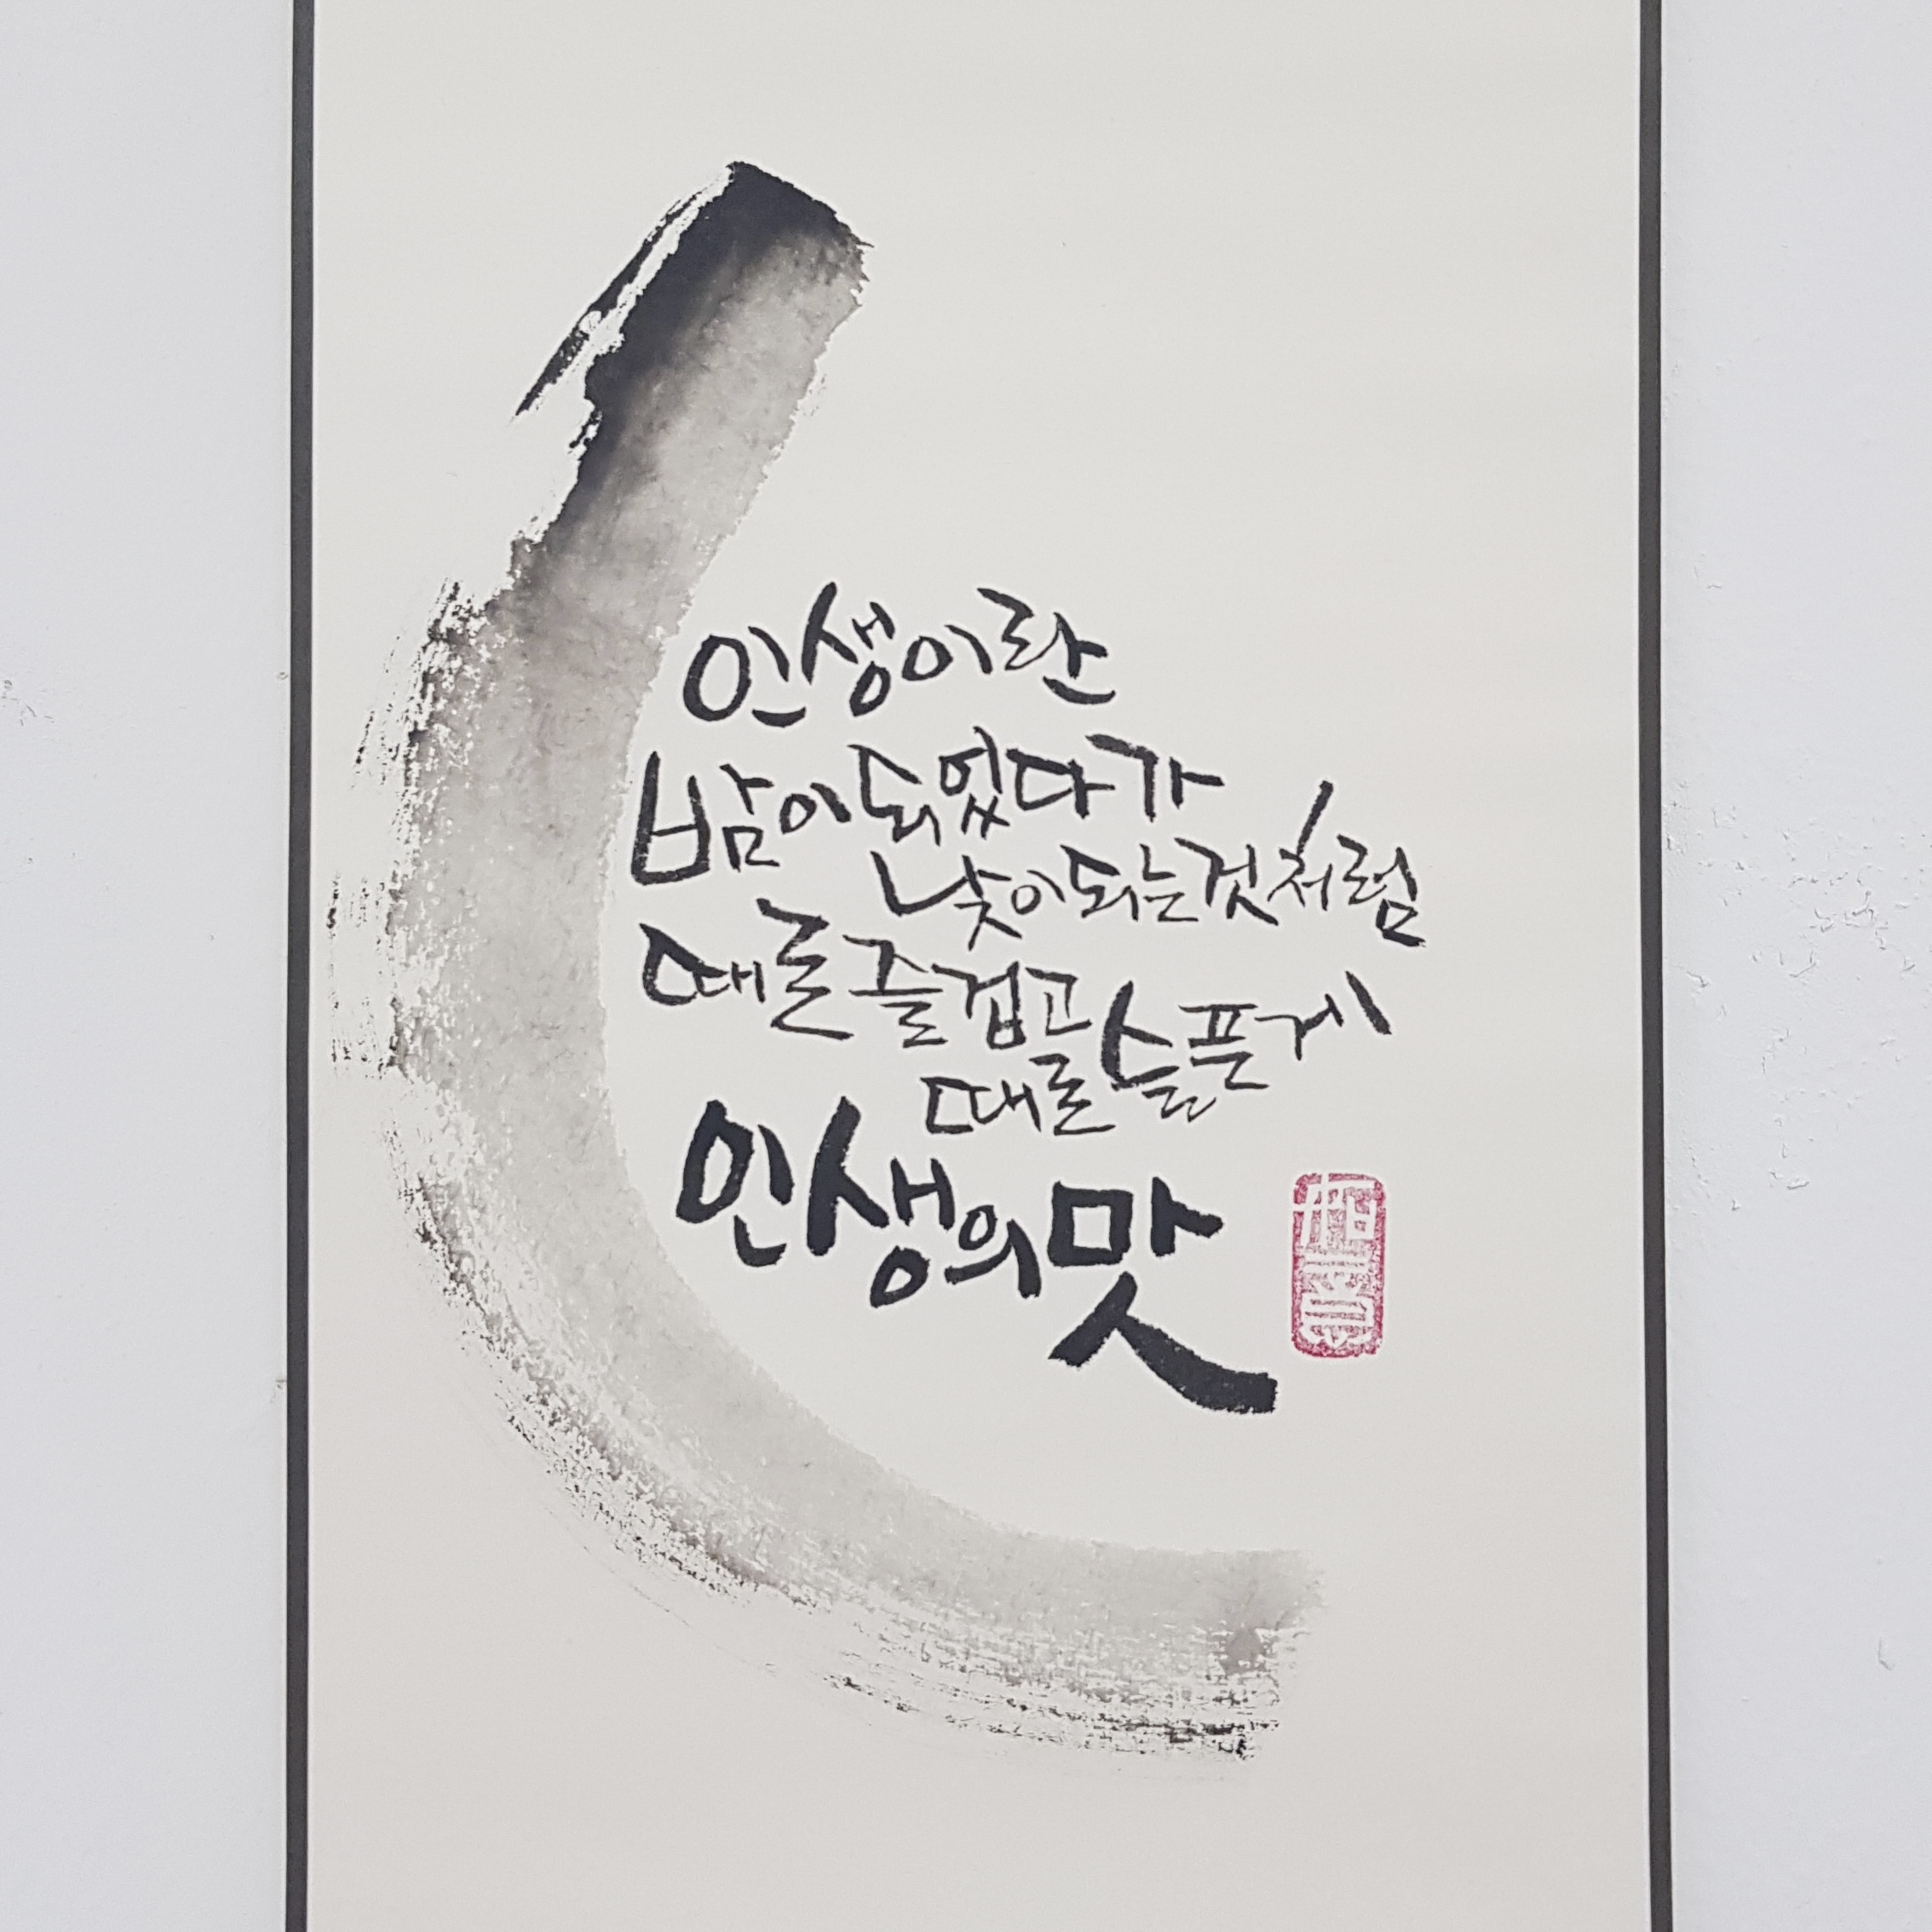 인생이란
밤이 되었다가
낮이 되는 것처럼
때로 즐겁고
때로 슬픈 게
인생의 맛